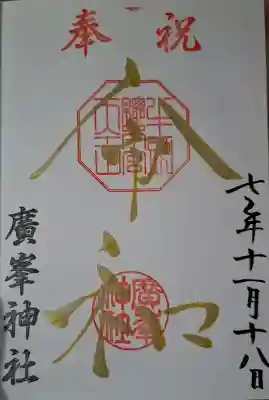 奉祝
令和
七年十一月十八日
廣峯神社
廣峯神社